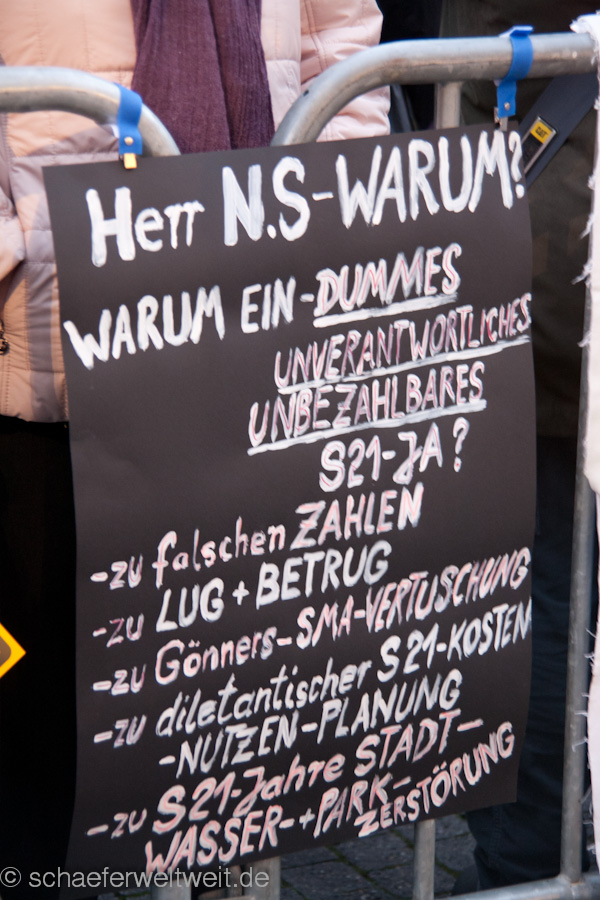 Herr N.S-WARUM?
CAT
WARUM EIN-DUMMES
UNVERANTWORTLICHES
UNBEZAHLBARES
S21-JA?
-zu falschen ZAHLEN
-zu LUG+BETRUG
-zu Gönners-SMA-VERTUSCHUNG
-zu diletantischer S21-KOSTEN
-NUTZEN-PLANUNG
-zu S21-Jahre STADT-
WASSER-+PARK-
ZERSTÖRUNG
© schaeferweltweit.de